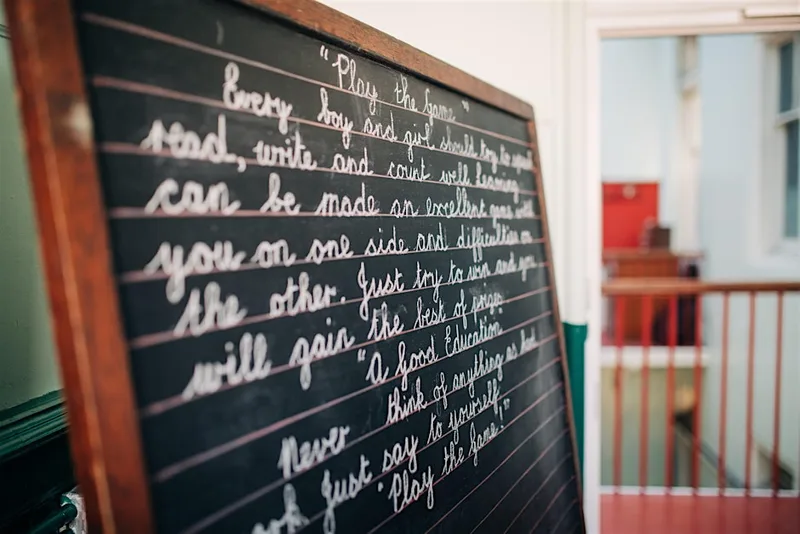 "Play the Game"
Every boy and girl should try to
read, write and count well. Learning
can be made an excellent game with
you on one side and difficulties on
the other. Just try to win and you
will gain the best of prizes.
"A Good Education"
Never think of anything as hard
Just say to yourself
"Play the Game."